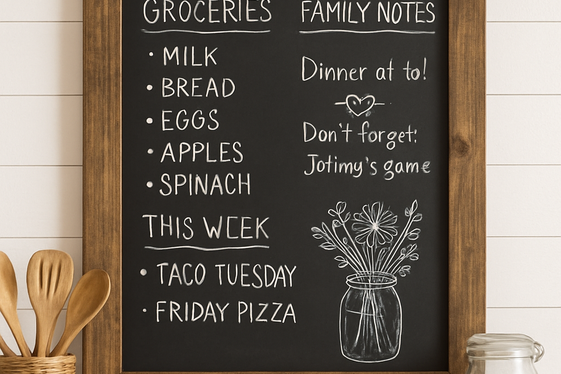 GROCERIES
• MILK
• BREAD
• EGGS
• APPLES
• SPINACH
THIS WEEK
• TACO TUESDAY
• FRIDAY PIZZA
FAMILY NOTES
Dinner at to!
Don't forget:
Jotimy's game